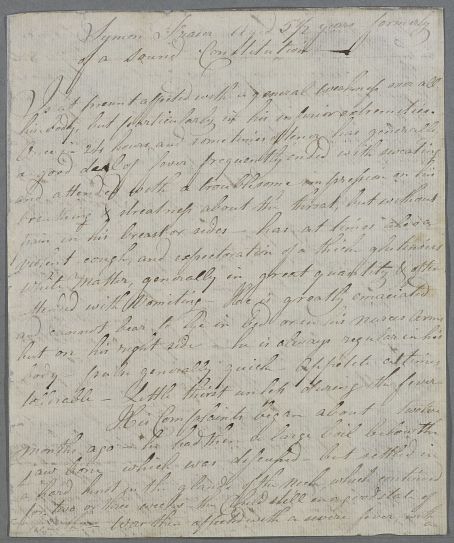 Symon Fraser Aged 5½ years formerly
of a sound Constitution
Is at present affected with a general weakness over all
his body, but particularly in his inferior extremities.
Once in 24 hours and sometimes oftener has generally
a good deal of fever frequently ended with sweating
and attended with a troublesome oppression in his
breathing & straitness about the throat, but without
pain in his breast or sides — has at times also a
violent cough, and expectoration of a thick glutenious
white matter generally in great quantity & often
attend with Vomiting — He is greatly emaciated
and cannot bear to lie in bed or in his nurses arms
but on his right side — he is always regular in his
body pain generally quick Appetite at times
tolerable — Little thirst unless during the fever
His Complaints began about twelve
months ago — he had then a large boil below the
Jaw bone which was but settled in
a hard knot in the of the neck which continued
for two or three weeks the Child still in a good state of
was then affected with a severe fever, with
a